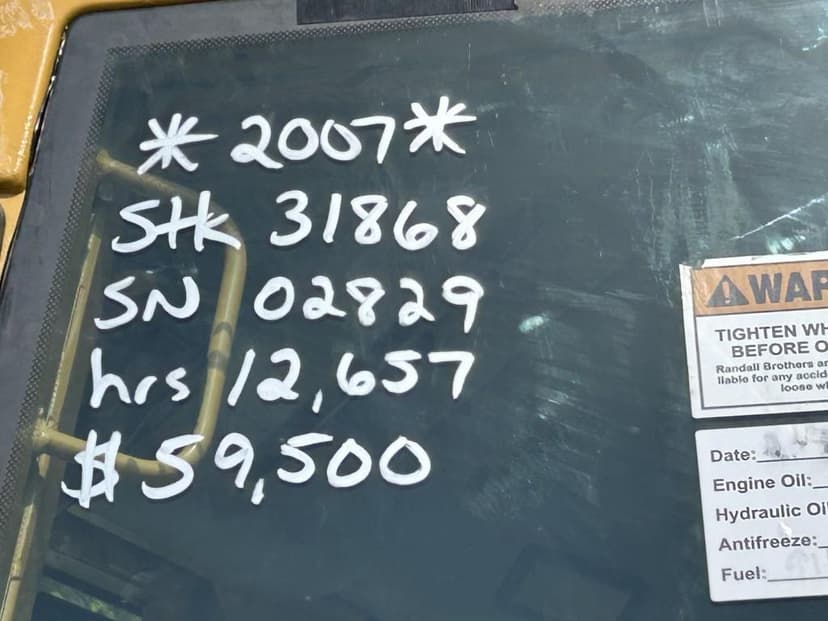 *2007*
Stk 31868
SN 02829
hrs 12,657
$59,500
TIGHTEN
BEFORE
Randall Brothers
liable for any
loose
Date:
Engine Oil:
Hydraulic
Antifreeze:
Fuel: